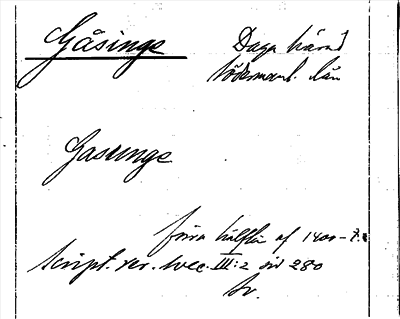 Gåsinge
Daga härad
Södermanl. län
Gasunge
förra hälften af 1400-t.
Script. rer. svec. III:2 sid 280
Av.